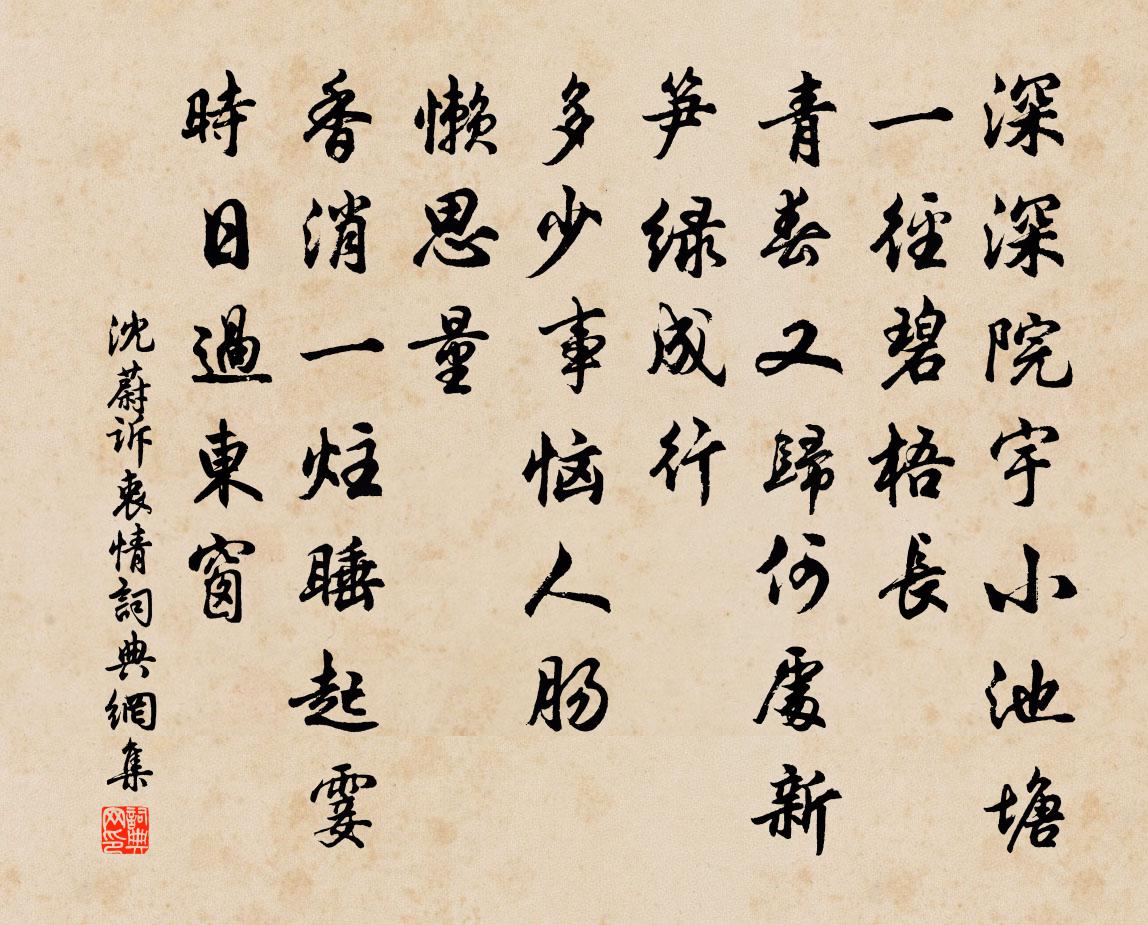 深深院宇小池塘
一徑碧梧長
青春又歸何處新
笋緑成行
多少事恼人肠
懶思量
香消一炷睡起霎
時日過東窗
沈蔚訴衷情詞典網集
詞典网印